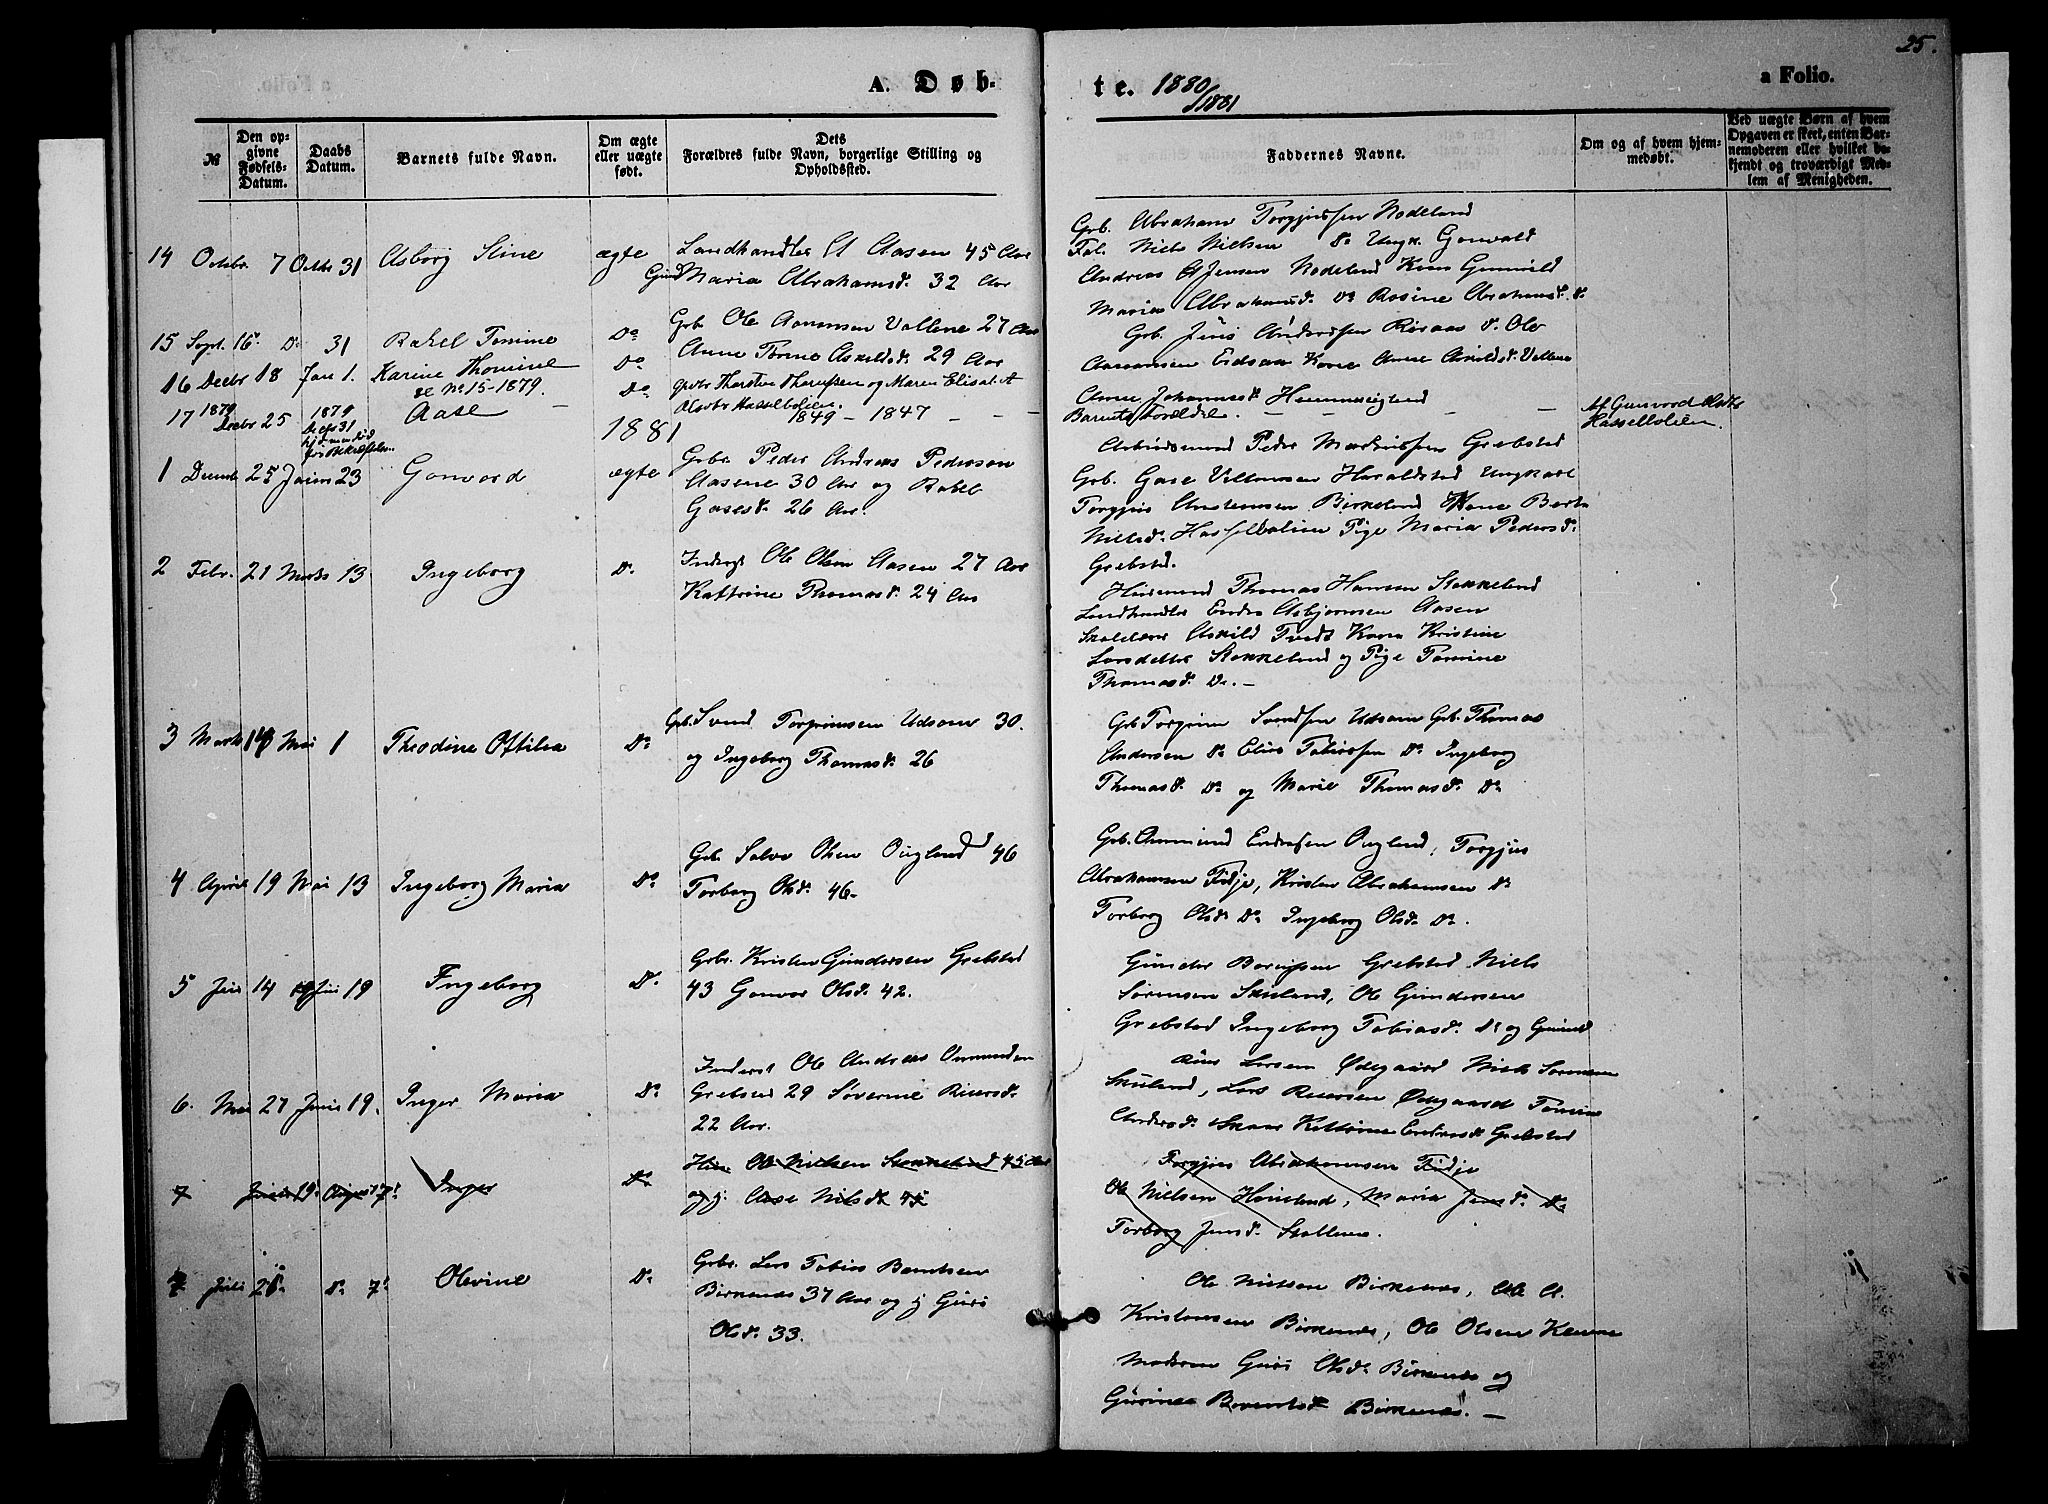 25.
A. Døb-
te. 1880/1881
a Folio.
№
Den opgivne Fødsels-Datum.
Daabs Datum.
Barnets fulde Navn.
Om ægte eller uægte født.
Dets Forældres fulde Navn, borgerlige Stilling og Opholdssted.
Faddernes Navne.
Om og af hvem hjemmedøbt.
Ved uægte Børn af hvem Opgaven er skeet, enten Barnemoderen eller hvilket bekjendt og troværdigt Medlem af Menigheden.
14 Octobr. 7 Octbr 31 Asborg Stine ægte Landhandler A Aasen 45 Aar
Maria Abrahamsd. 32 Aar
Grb. Abraham Torgjussen Nodeland
Niels Nielsen do Ungk. Gonvald
Andreas Jensen Nodeland Kone Gunvild
Maria Abrahamsd. Do Rosine Abrahamsd. do
15 Sept. 16 Do 31 Rakel Tomine Do Grb. Ole Aanensen Vallene 27 Aar
Anne Tomine Askildsd. 29 Aar
Grb. Jens Andersen Røraas do Ole
Aanensen Kone Anne Askildsd. Vallene
Anne Johannesd.
16 Decbr 18 Jan 1. Karine Thomine Do
se No 15-1879.
17 1879 Decbr 25 1879 Decbr 31 Aase — Do Grbr Thorsten og Maren Elisabet
Olsdtr Hasselbolien.
1849 - 1847 - -
Barnets Forældre. - - - -
Af Gunvord
Hasselbolien.
1881
1 Decemb 25 Januar 23 Gonvord ægte Grbr. Peder Andreas Pederson
Aasene 30 Aar og Rakel
Gasesd. 26 Aar.
Arbeidsmand Peder Grebsted
Grb. Gase Villumsen Haraldstad Ungkarl
Torgjus Birkeland Kone Berte
Nielsd. Hasselbolien Pige Maria Pedersd.
Grebsted.
2 Febr. 21 Marts 13 Ingeborg Do Inderst Ole Olsen Aasen 27 Aar
Kattrine Thomasd. 24 Aar
Huusmand Thomas Hansen Stokkeland
Landhandler Endre Asbjørnsen Aasen
Skolelærer Askild Tvedt Kone Kristine
Larsdatter Stokkeland og Pige Tomine
Thomasd. Do. —
3 Marts 14 Mai 1 Theodine Ottilia Do Grb. Svend Torgrimsen Udsom 30.
og Ingeborg Thomasd. 26
Grb Torgrim Svendsen Udsom Grb. Thomas
Andersen do Elias Tobiassen Do Ingeborg
Thomasd. Do og Marie Thomasd. Do
4 April 19 Mai 13 Ingeborg Maria Do Grb. Salve Olsen Ougland 46
Torborg Olsd. 46.
Grb. Ommund Endresen Ougland, Torgjus
Abrahamsen Fidje, Kristen Abrahamsen do
Torborg Olsd. Do Ingeborg Olsd. Do.
5 14 19 Ingeborg Do Grbr. Kristen Gundersen Grebsted
43 Gonvor Olsd. 42.
Gunder Grebsted Niels
Sørensen Skuland, Ole Gundersen
Grebsted Ingeborg Tobiasd. do og Gunild
6. Mai 27 Juni 19. Inger Maria Do Inderst Ole Andreas Ommundsen
Grebsted 29 Søverine Reiersd.
22 Aar.
Larsen Ødegaard Niels Sørensen
Skuland, Lars Reiersen Ødegaard Tomine
Andersd. Skaar Kattrine Endresd. Grebsted
7 Juni 19. August 7. Inger Do Huus Ole Nielsen Stokkeland 45 Aar
og j. Aase Nilsd. 45
Torgjus Abrahamsen Fidje
Ole Nielsen Huuseland, Maria Jensd. Do
Torborg Jensd. Stallene.
7 Juli 28. Do 7. Olevine Do Grbr. Lars Tobias Berntsen
Birkenæs 37 Aar og j Guri
Olsd. 33.
Ole Nielsen Birkenæs, Ole A.
Kristensen Birkenæs, Ole Olsen Kenne
Moderen Guri Olsd. Birkenæs og
Gurine Berentsd. Birkenæs. —